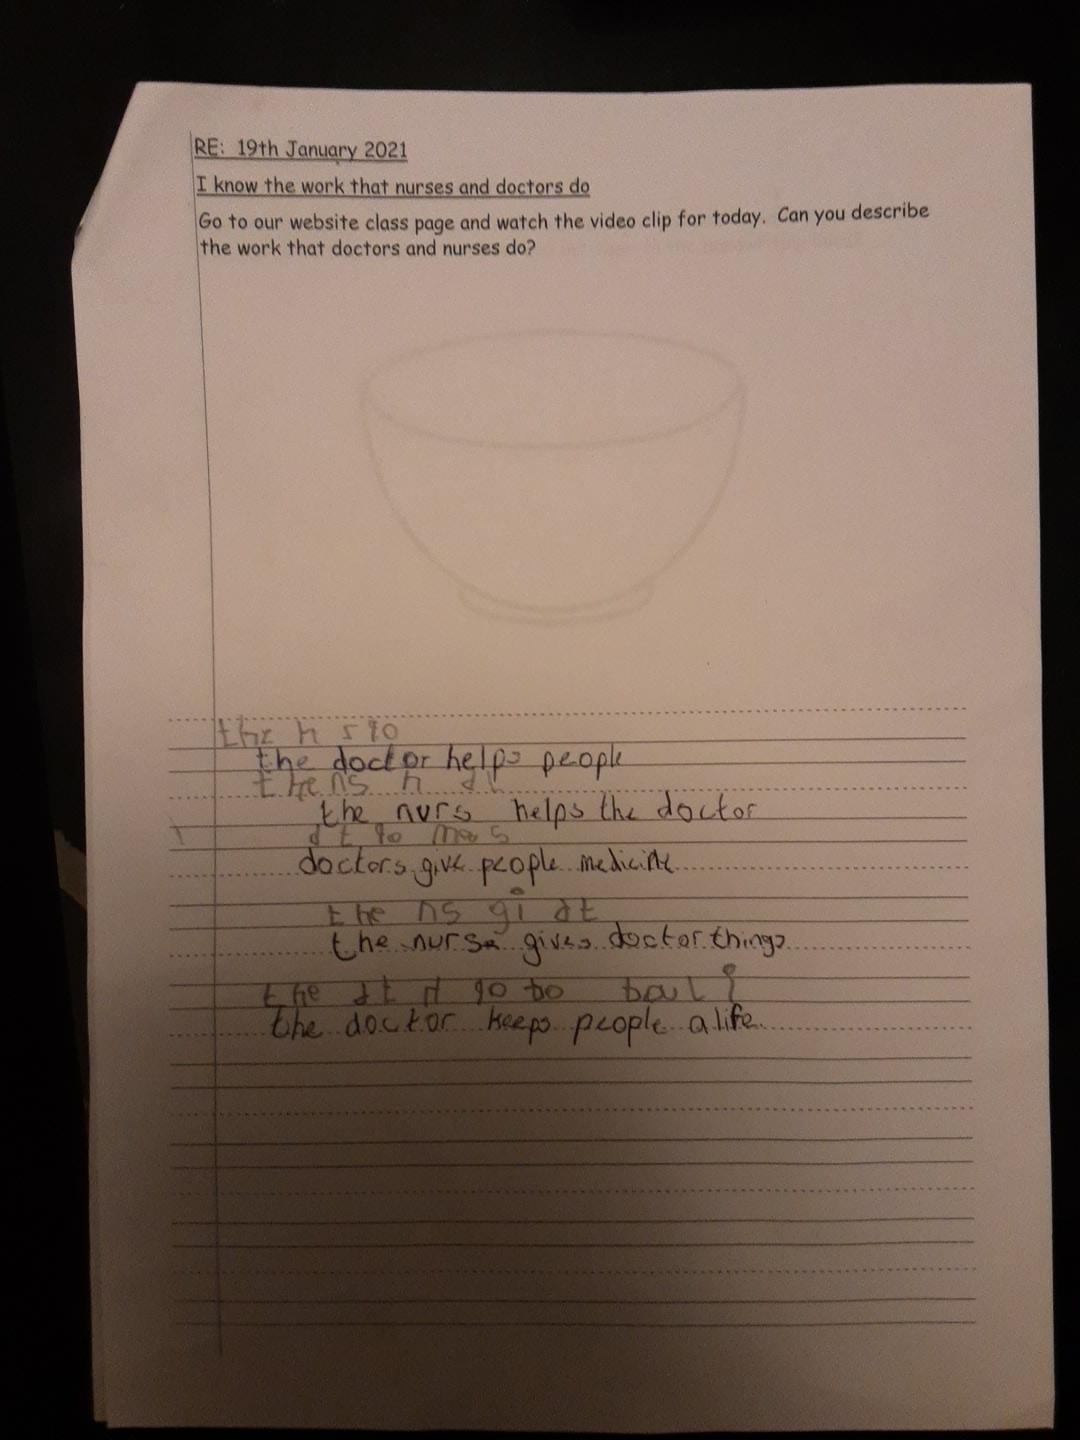 RE: 19th January 2021
I know the work that nurses and doctors do
Go to our website class page and watch the video clip for today. Can you describe
the work that doctors and nurses do?
the h s to
the doctor helps people
the ns h dt
the nurs helps the doctor
dt go mes
doctors give people medicine
the ns gi dt
the nurse gives doctor things
the dt d go to
the doctor keeps people alife.